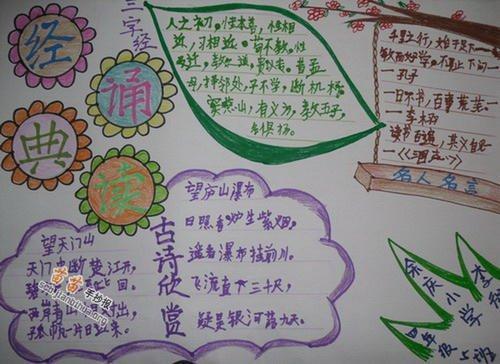 经
诵
典
读
三字经
人之初,性本善,性相
近,习相远。苟不教,性
乃迁,教之道,贵以专。昔孟
母,择邻处,子不学,断机杼
窦燕山,有义方,教五子,
名俱扬。
千里之行,始于足下一
敏而好学,不耻下问一
一孔子
一日不书,百事荒芜。一
一李
读书百遍,其义自
名人名言
望庐山瀑布
日照香炉生紫烟,
遥看瀑布挂前川。
飞流直下三千尺,
疑是银河落九天。
古诗欣赏
望天门山
天门中断楚江开,
两岸青山
孤帆一片日边来。
苗苗手抄报
余庆小学
四年级